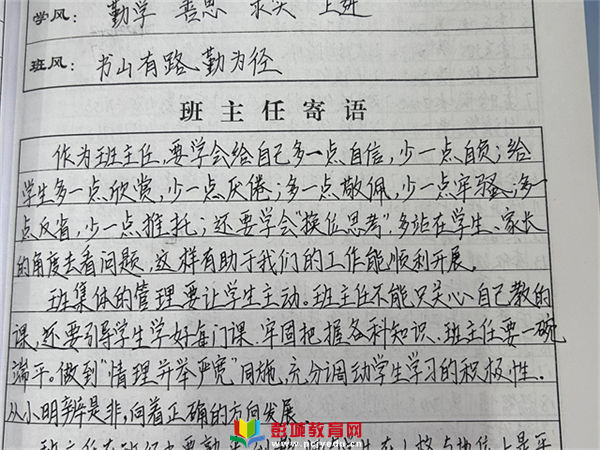 学风: 勤学 善思 求实 上进
班风: 书山有路、勤为径
班主任寄语
作为班主任,要学会给自己多一点自信,少一点自负;给
学生多一点欣赏,少一点厌倦;多一点敬佩,少一点牢骚;多一
点反省,少一点推托;还要学会“换位思考”,多站在学生、家长
的角度去看问题,这样有助于我们的工作能顺利开展。
班集体的管理要让学生主动。班主任不能只关心自己教的
课,还要引导学生学好每门课.牢固把握各科知识.班主任要一碗
端平。做到“情理并举严宽”同施,充分调动学生学习的积极性.
从小明辨是非,向着正确的方向发展
班主任在
彭城教育网
www.pcjyedu.cn